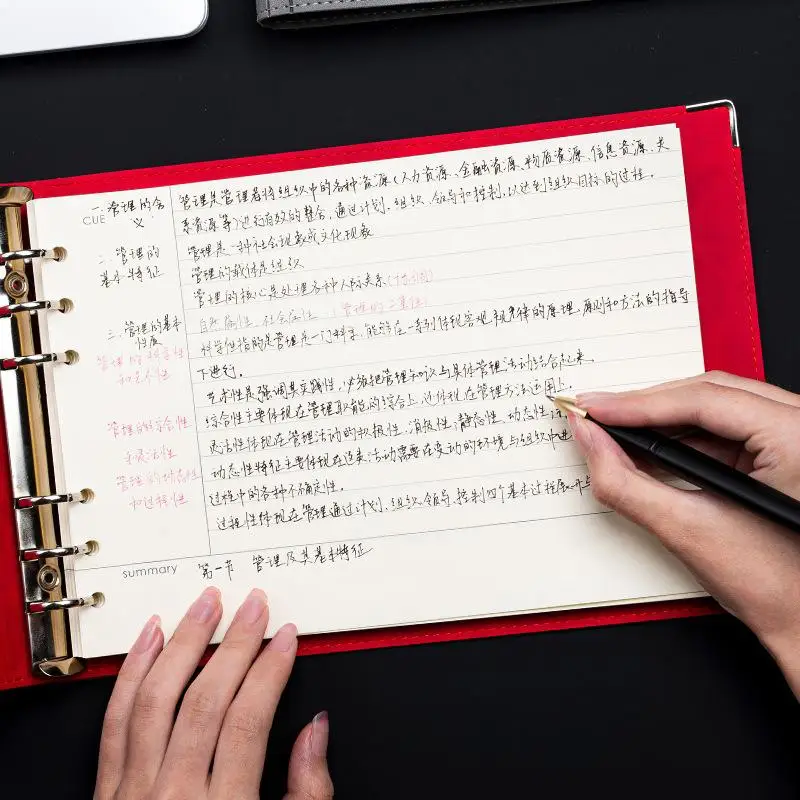 CUE
一.管理的含义.
二.管理的
基本特征
三.管理的基本
性质
管理的科学性
和艺术性
管理的综合性
和灵活性
管理的动态性
和过程性
管理是管理者将组织中的各种资源(人力资源、金融资源、物质资源、信息资源、关
系资源等)进行有效的整合,通过计划、组织、领导和控制,以达到组织目标的过程.
管理是一种社会现象或文化现象
管理的载体是组织
管理的核心是处理各种人际关系
自然属性、社会属性 (管理的二重性)
科学性指的是管理是一门科学,能够在一系列体现客观规律的原理、原则和方法的指导
下进行.
艺术性是强调其实践性,必须把管理知识与具体管理活动结合起来.
综合性主要体现在管理职能的综合上,还体现在管理方法运用上.
灵活性体现在管理活动的积极性、消极性、静态性、动态性
动态性特征主要体现在这类活动需要在变动的环境与组织中进
过程中的各种不确定性.
过程性体现在管理通过计划、组织、领导、控制四个基本过程展开
summary 第一节 管理及其基本特征